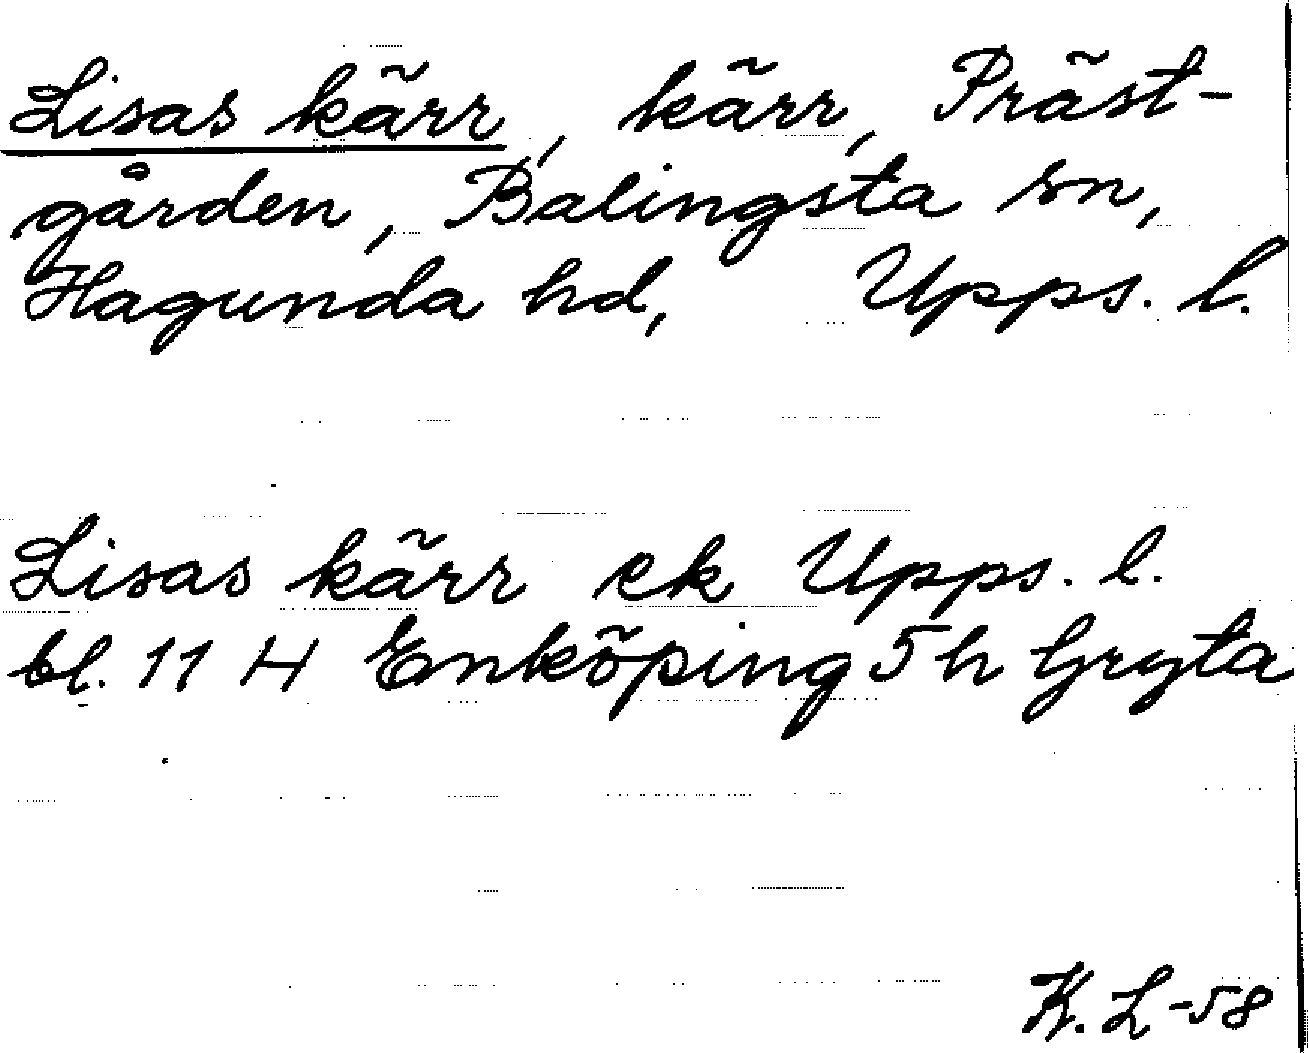 Lisas kärr, kärr, Präst-
gården, Balingsta sn,
Hagunda hd, Upps. l.
Lisas kärr ek Upps. l.
bl. 11 H Enköping 5 h Gryta
K. L -58